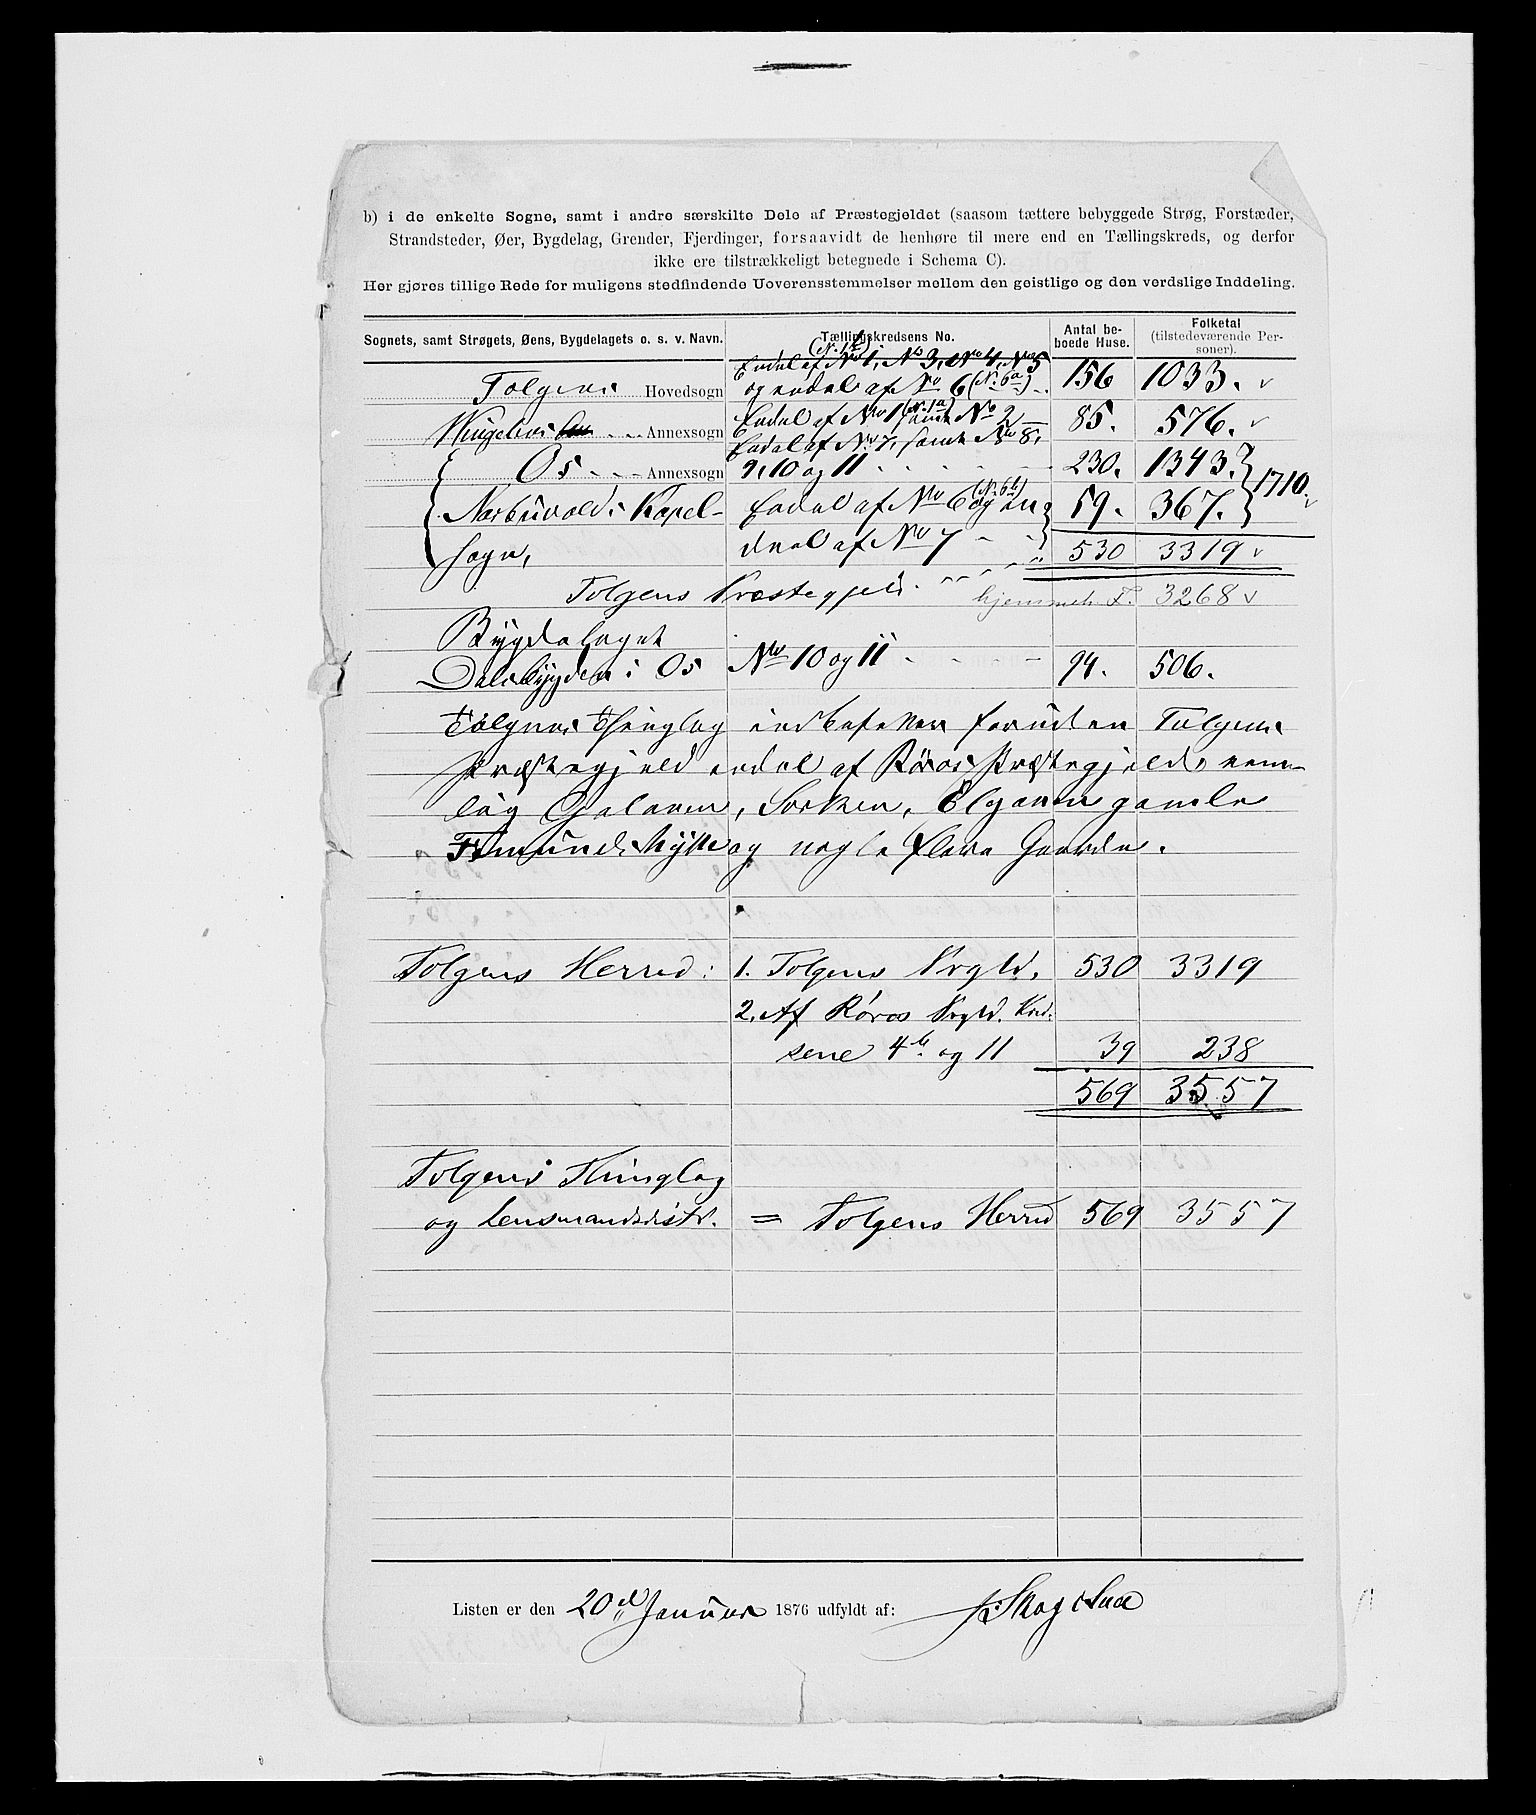 b) i de enkelte Sogne, samt i andre særskilte Dele af Præstegjeldet (saasom tættere bebyggede Strøg, Forstæder,
Strandsteder, Øer, Bygdelag, Grender, Fjerdinger, forsaavidt de henhøre til mere end en Tællingskreds, og derfor
ikke ere tilstrækkeligt betegnede i Schema C).
Her gjøres tillige Rede for muligens stedfindende Uoverensstemmelser mellem den geistlige og den verdslige Inddeling.
Sognets, samt Strøgets, Øens, Bygdelagets o. s. v. Navn. Tællingskredsens No. Antal be-boede Huse. Folketal (tilstedeværende Per-soner).
(N. 1b)
Endel af No 1, No 3, No 4, No 5
Tolgens Hovedsogn og endel af No 6 (N. 6a) 156 1033.
Vingelens Annexsogn Endel af No 1 (N. 1a) samt No 2 85. 576.
Endel af No 7, samt No 8,
Os Annexsogn 9, 10 og 11 230. 1343. 1710.
Narbuvolds Kapel- Endel af No 6 (N. 6b) og en 59. 367.
sogn, deel af No 7 530 3319
Tolgens Præstegjeld. hjemmeh. F. 3268
Bygdelaget
Dalsbygden i Os No 10 og 11 94. 506.
Tolgens Thinglag indbefatter foruden Tolgens
Præstegjeld endel af Røros Præstegjeld, nem-
lig Galaaen, Sørken, Elgaaen gamle
Fæmunds Hytte og nogle flere Gaarde.
Tolgens Herred: 1. Tolgens Prgld, 530 3319
2. Af Røros Prgld. Kred-
sene 4b og 11 39 238
569 3557
Tolgens Thinglag
og Lensmandsdistr. = Tolgens Herred 569 3557
Listen er den 20de Januar 1876 udfyldt af: